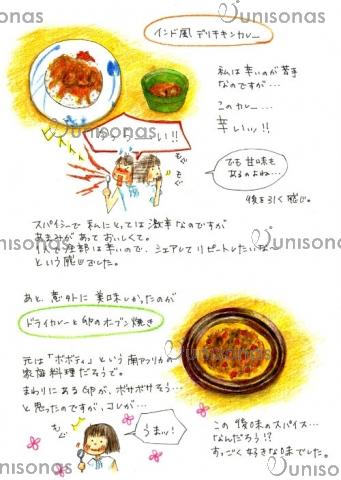 unisonas
インド風 デリチキンカレー
私は辛いのが苦手
なのですが…
このカレー…
辛いッ!!
い!!
もぐ
もぐ
でも 甘味も
あるのよね…
後を引く感じ。
スパイシーで 私にとっては 激辛なのですが
あまみが あって おいしくて。
全部は辛いので、シェアして リピートしたいな
という感じでした。
あと、意外に 美味しかったのが
ドライカレーと卵のオーブン焼き
元は「ボボティ」という 南アフリカの
家庭料理だそうで。
まわりにある卵が、ボサボサそう…
と思ったのですが、コレが…
もぐ
うまッ!
この 後味のスパイス…
なんだろう!?
すっごく 好きな味でした。